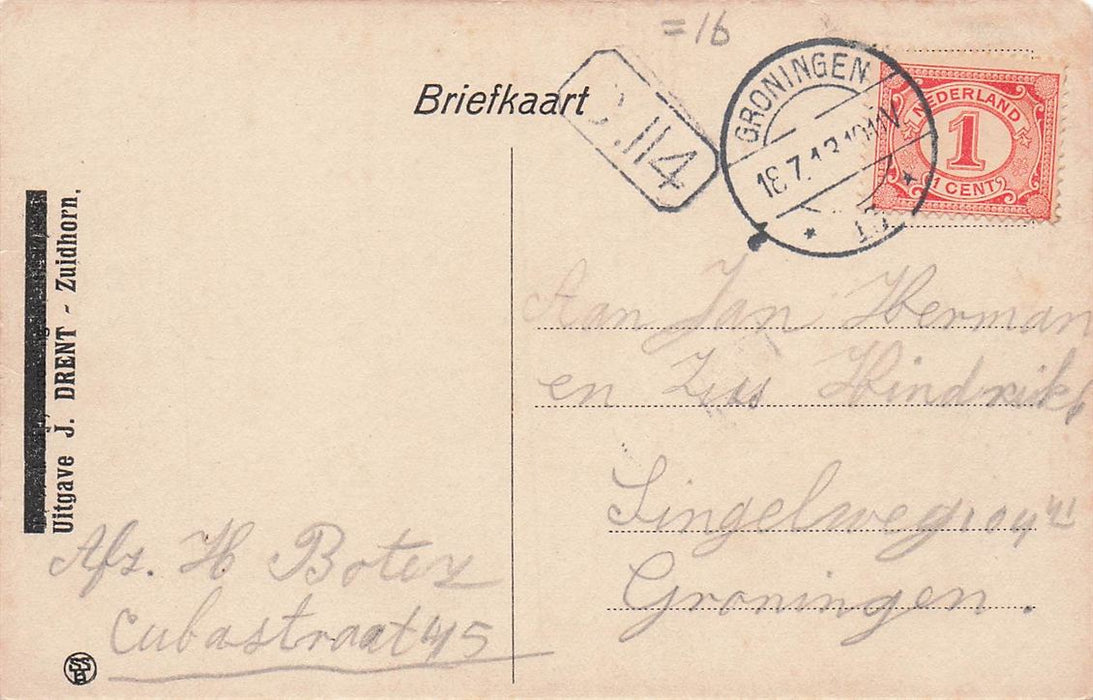 =16
Briefkaart
.114
GRONINGEN
18.7.13.10-11V
NEDERLAND
1
1 CENT
Uitgave J. DRENT - Zuidhorn.
Aan Jan Herman
en Zus Hindriks
Singelweg 104
Groningen.
Afz. H Boter
Cubastraat 45